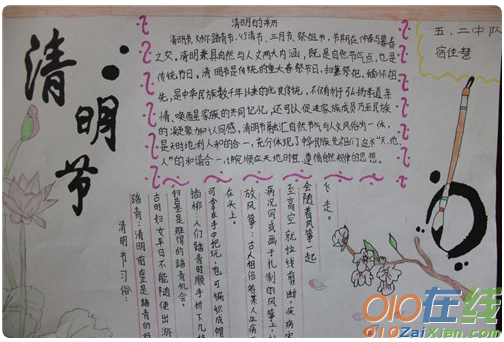 清明节
清明的来历
五、二中队
宿佳慧
清明节又叫踏青节、行清节、三月节、祭祖节，节期在仲春与暮春
之交。清明兼具自然与人文两大内涵，既是自然节气点，也是
传统节日。清明节是传统的重大春祭节日，扫墓祭祀、缅怀祖
先，是中华民族数千年以来的优良传统，不仅有利于弘扬孝道亲
情、唤醒家族的共同记忆，还可以促进家族成员乃至民族
的凝聚力和认同感。清明节融汇自然节气与人文风俗为一体，
是天时地利人和的合一，充分体现了中华民族先祖们追求“天、地、
人”的和谐合一，讲究顺应天时地宜、遵循自然规律的思想。
清明节习俗：
踏青：清明前后是踏青的好
古时妇女平日不能随便出游
扫墓是难得的踏青机会。
插柳：人们踏青时顺手折下几枝
可拿在手中把玩，也可编织成帽
在头上。
放风筝：古人相信若某人生病
病况写或画于扎制的风筝上
至高空就性线剪断，疾病灾
会随着风筝一起
飞走。
010在线
010ZaiXian.com